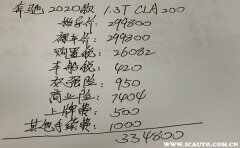 奔驰 2020款 1.3T CLA200
指导价: 299800
裸车价: 299800
购置税: 26082
车船税: 420
交强险: 950
商业险: 7404
上牌费: 500
其他手续费: 1000
334600
WWW.5CAUTO.COM.CN